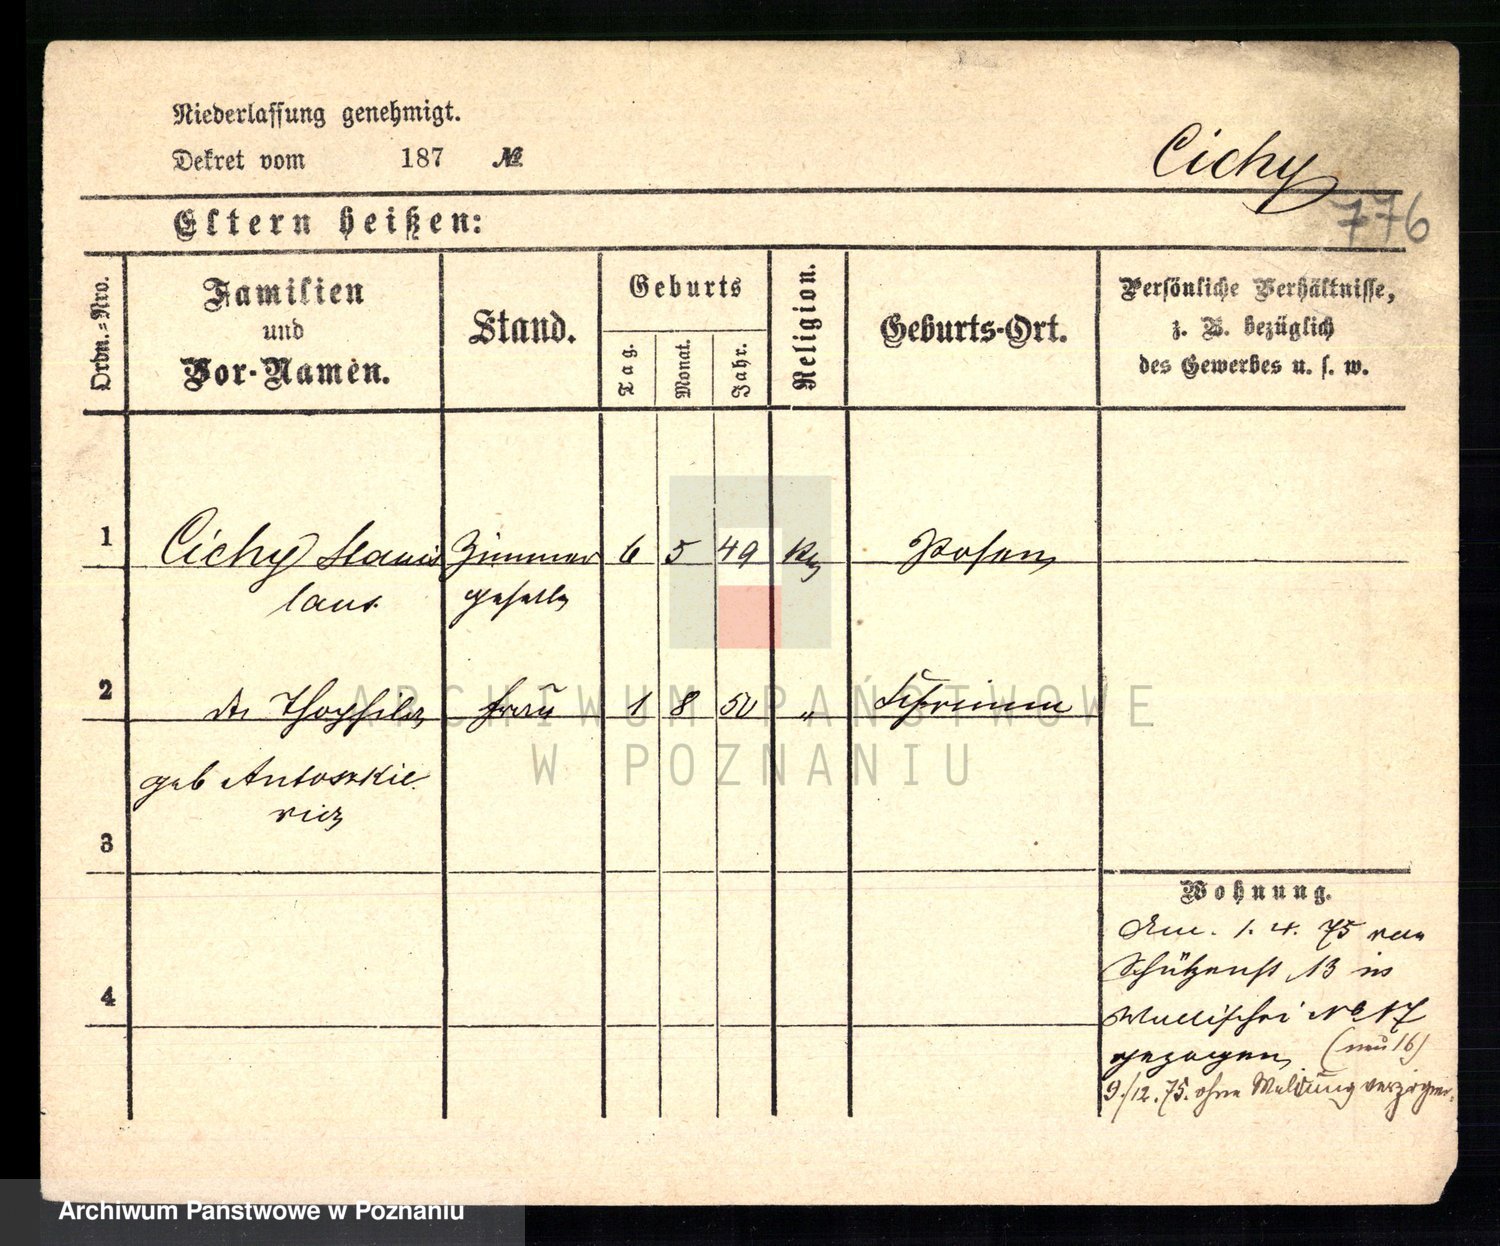 Niederlassung genehmigt.
Dekret vom 187 №
Cichy
776
Eltern heißen:
Ordn.=Nro.
Familien
und
Vor-Namen.
Stand.
Geburts
Tag.
Monat.
Jahr.
Religion.
Geburts-Ort.
Persönliche Verhältnisse,
z. B. bezüglich
des Gewerbes u. s. w.
1 Cichy Stanis Zimmer 6 5 49 Posen
laus geselle
2 Thophila Frau 1 8 50 " Schrimm
geb Antoszkie
wicz
3
4
Wohnung.
Am. 1. 4. 75 von
Schützenst 13 in
Wallischei No 17
gezogen (neu 16)
9./12. 75. ohne Meldung verzogen.
ARCHIWUM PAŃSTWOWE
W POZNANIU
Archiwum Państwowe w Poznaniu